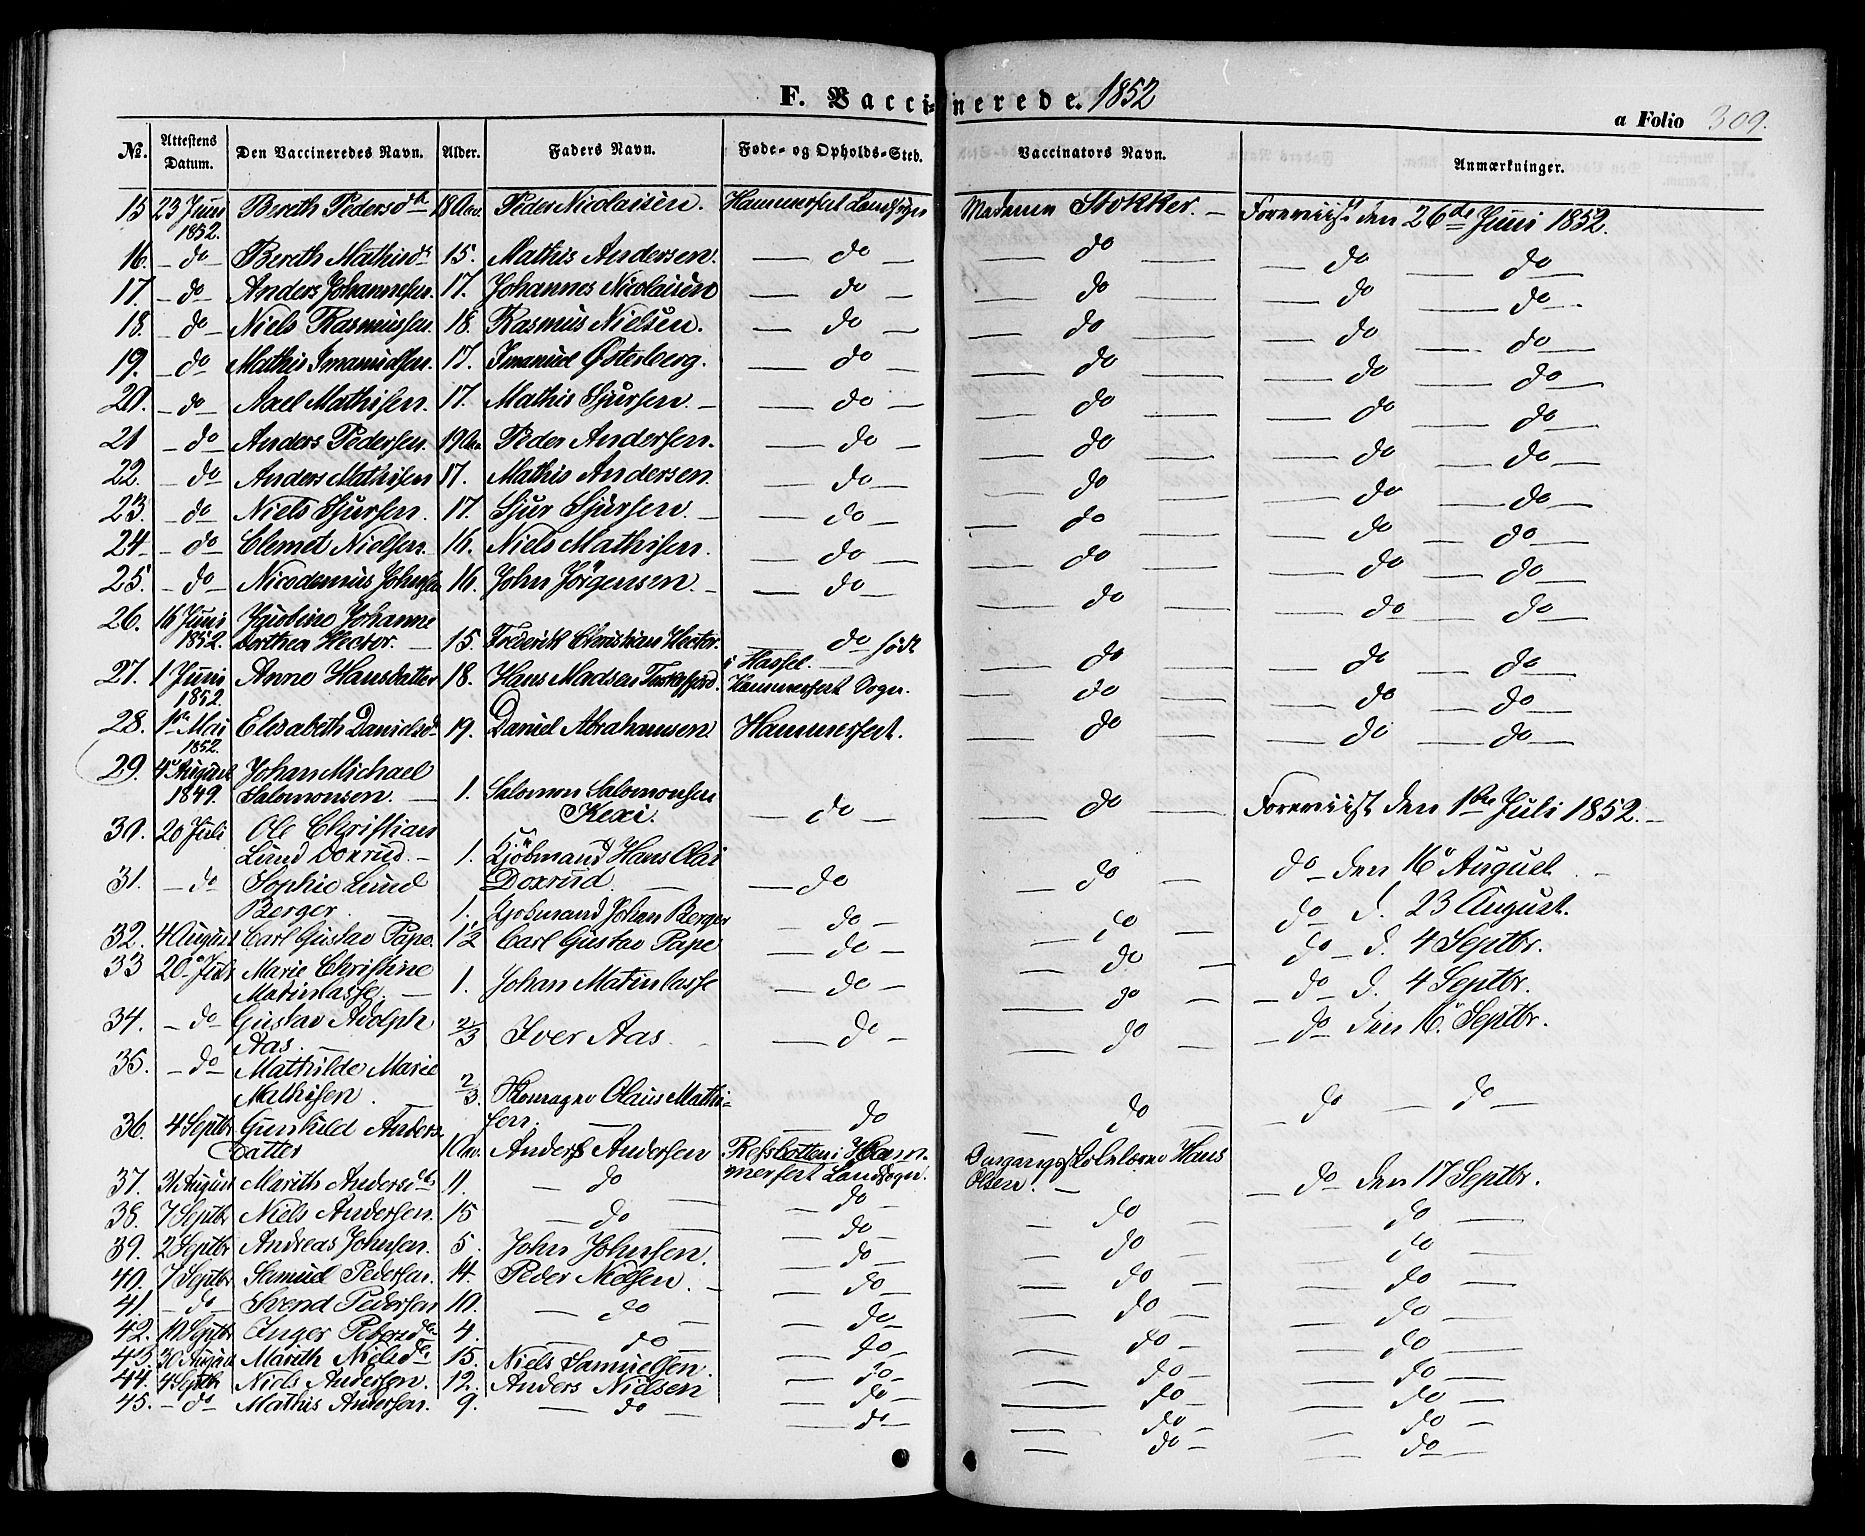 F. Vaccinerede. 1852
a Folio 309.
No. Attestens Datum. Den Vaccineredes Navn. Alder. Faders Navn. Føde- og Opholds-Sted. Vaccinators Navn. Anmærkninger.
15 23 Juni 1852. Bereth Pedersdtr 18 Aar. Peder Nicolaisen. Hammerfest Landsogn Madame Stokker. — Foreviist den 26de Juni 1852.
16. — do — Bereth Mathisdtr 15. Mathis Andersen. — do — — do — — do — — do —
17. — do — Anders Johannesen. 17. Johannes Nicolaisen — do — — do — — do — — do —
18. — do — Niels Rasmussen. 18. Rasmus Nielsen. — do — — do — — do — — do —
19. — do — Mathis Imanuelsen. 17. Imanuel Østerberg. — do — — do — — do — — do —
20. — do — Axel Mathisen. 17. Mathis Sjursen. — — do — — do — — do — — do —
21 — do — Anders Pedersen. 19 Aar Peder Andersen. — do — — do — — do — — do —
22. — do — Anders Mathisen 17. Mathis Andersen — do — — do — — do — — do —
23. — do — Niels Sjursen. 17. Sjur Sjursen. — — do — — do — — do — — do —
24 — do — Clemet Nielsen. 16. Niels Mathisen. — do — — do — — do — — do —
25. — do — Nicodemus Johnsen 16. John Jörgensen. — — do — — do — — do — — do —
26. 16 Juni Johanne
1852. Dorthea Hector. — 15. Frederik Christian Hector. — do — født
i Hassel. — — do — — do — — do —
27. 1 Juni 1852. Anne Hansdatter 18. Hans Madsen Hammerfest Sogn. — do — — do — — do —
28. 1ste Mai 1852. Elisabeth Danielsd. 19. Daniel Abrahamsen Hammerfest. — do — — do — — do —
29. 4 August Johan Michael
1849. Salomonsen. — 1. Salomon Salomonsen
Kexi. — do — — do — Foreviist den 1ste Juli 1852. —
30. 20 Juli Ole Christian
Lund Doxrud. — 1. Kjöbmand Hans Olai
Doxrud. — — do — do — do — den 16 August.
31. — do Sophie Lund
Berger — 1. Kjobmand Johan Berger — do — — do — do — d. 23 August.
32. 4 August Carl Gustav Pape. 1½ Carl Gustav Pape — do — — do — do — d. 4 Septbr.
33 20 Juli Marie Christine
Matinlasse. — 1. Johan Matinlasse — do — — do — — do — d. 4 Septbr.
34. — do Gustav Adolph
Aas. — 2/3 Iver Aas. — do — — do — — do — den 16. Septbr.
35. — do — Mathilde Marie
Mathisen. 2/3. Olaus Mathi-
sen. — — do — do — do — do —
36. 4 Septbr Gunhild Anders
Datter 1 Aar. Anders Andersen Refsbotten i Ham-
merfest Landsogn. Omgangsskolelærer Hans
Olsen. — — do — den 17 Septbr.
37. 31 August Marith Andersdtr 11. — do — do — — do — — do —
38. 7 Septbr Niels Andersen. 15 — do — — do — — do — do —
39. 2 Septbr Andreas Johnsen. 5. John Johnsen. — do — — do — do —
40. 7 Septbr Samuel Pedersen. 14. Peder Nielsen. — — do — — do — — do —
41. — do — Svend Pedersen 10. — do — — do — — do — — do —
42. 11 Septbr Inger Pedersdtr 4. — do — — do — — do — — do —
43. 30 August Marith Nielsdtr 15. Niels Samuelsen. — do — — do — — do —
44. 4 Septbr Niels Andersen. 12. Anders Nielsen — do — — do — — do —
45. — do — Mathis Andersen. 9. — do — — do — — do — — do —